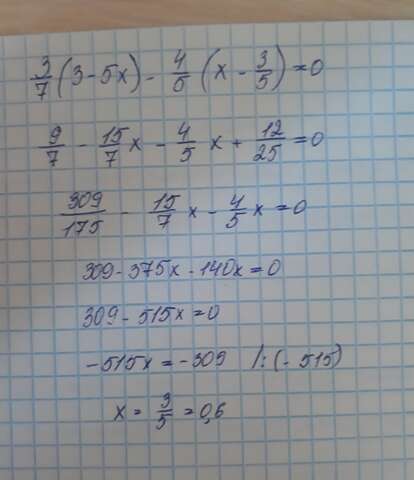 3/7 (3 - 5x) - 4/5 (x - 3/5) = 0
9/7 - 15/7 x - 4/5 x + 12/25 = 0
309/175 - 15/7 x - 4/5 x = 0
309 - 375x - 140x = 0
309 - 515x = 0
-515x = -309 /: (-515)
x = 3/5 = 0,6